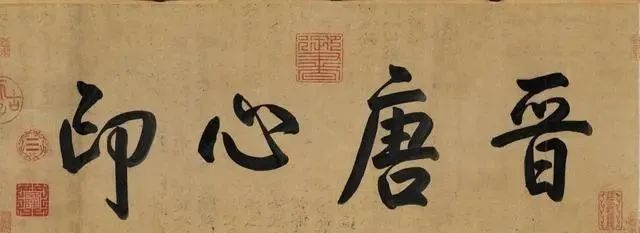 晋唐心印